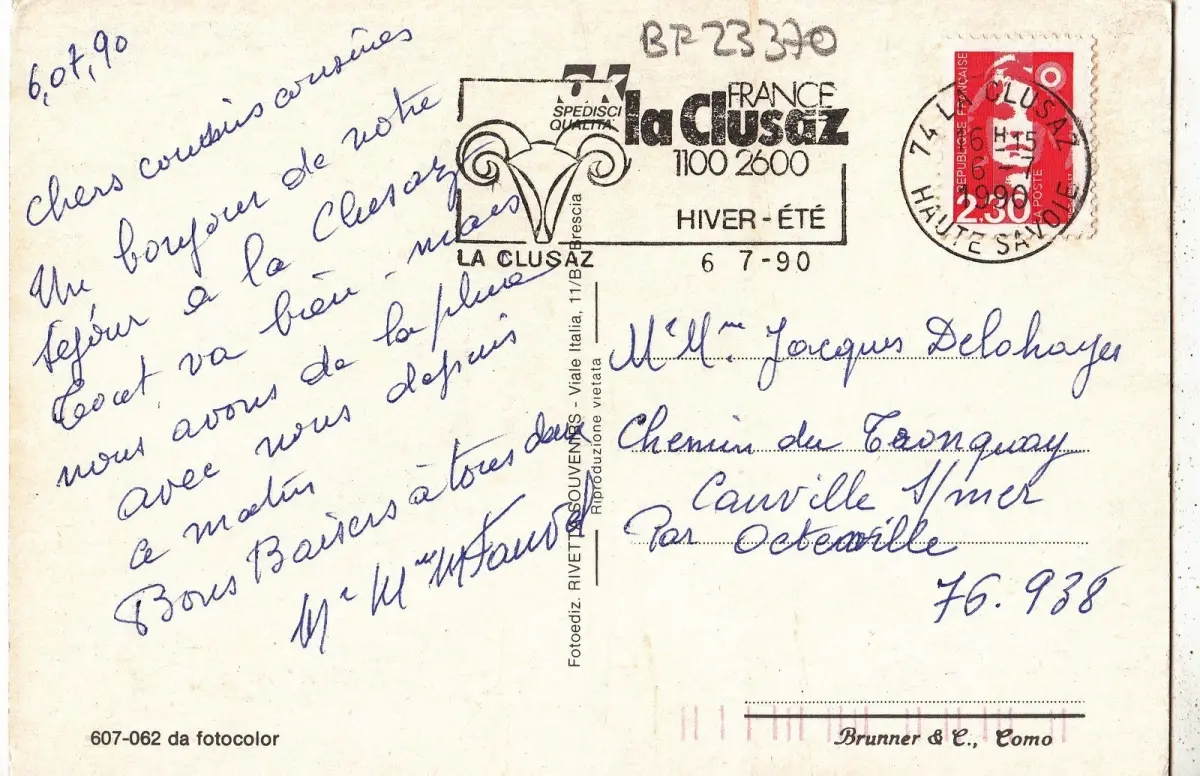 6,07,90
chers cousins cousines
Un bonjour de notre
séjour a la Clusaz
tout va bien - mais
nous avons de la pluie
avec nous depuis
ce matin
Bons Baisers à tous deux
Mr Mme
BF 23370
SPEDISCI
QUALITA'
FRANCE
la Clusaz
1100 2600
HIVER - ÉTÉ
LA CLUSAZ
6 7-90
74 LA CLUSAZ
6 H-15
6 - 7
1990
HAUTE SAVOIE
REPUBLIQUE FRANÇAISE
LA POSTE
2.30
Mr Mme Jacques Delahayes
Chemin du Tronquay
Cauville S/mer
Par Octeville
76.938
Fotoediz. RIVETTA SOUVENIRS - Viale Italia, 11/B - Brescia
Riproduzione vietata
607-062 da fotocolor
Brunner & C., Como